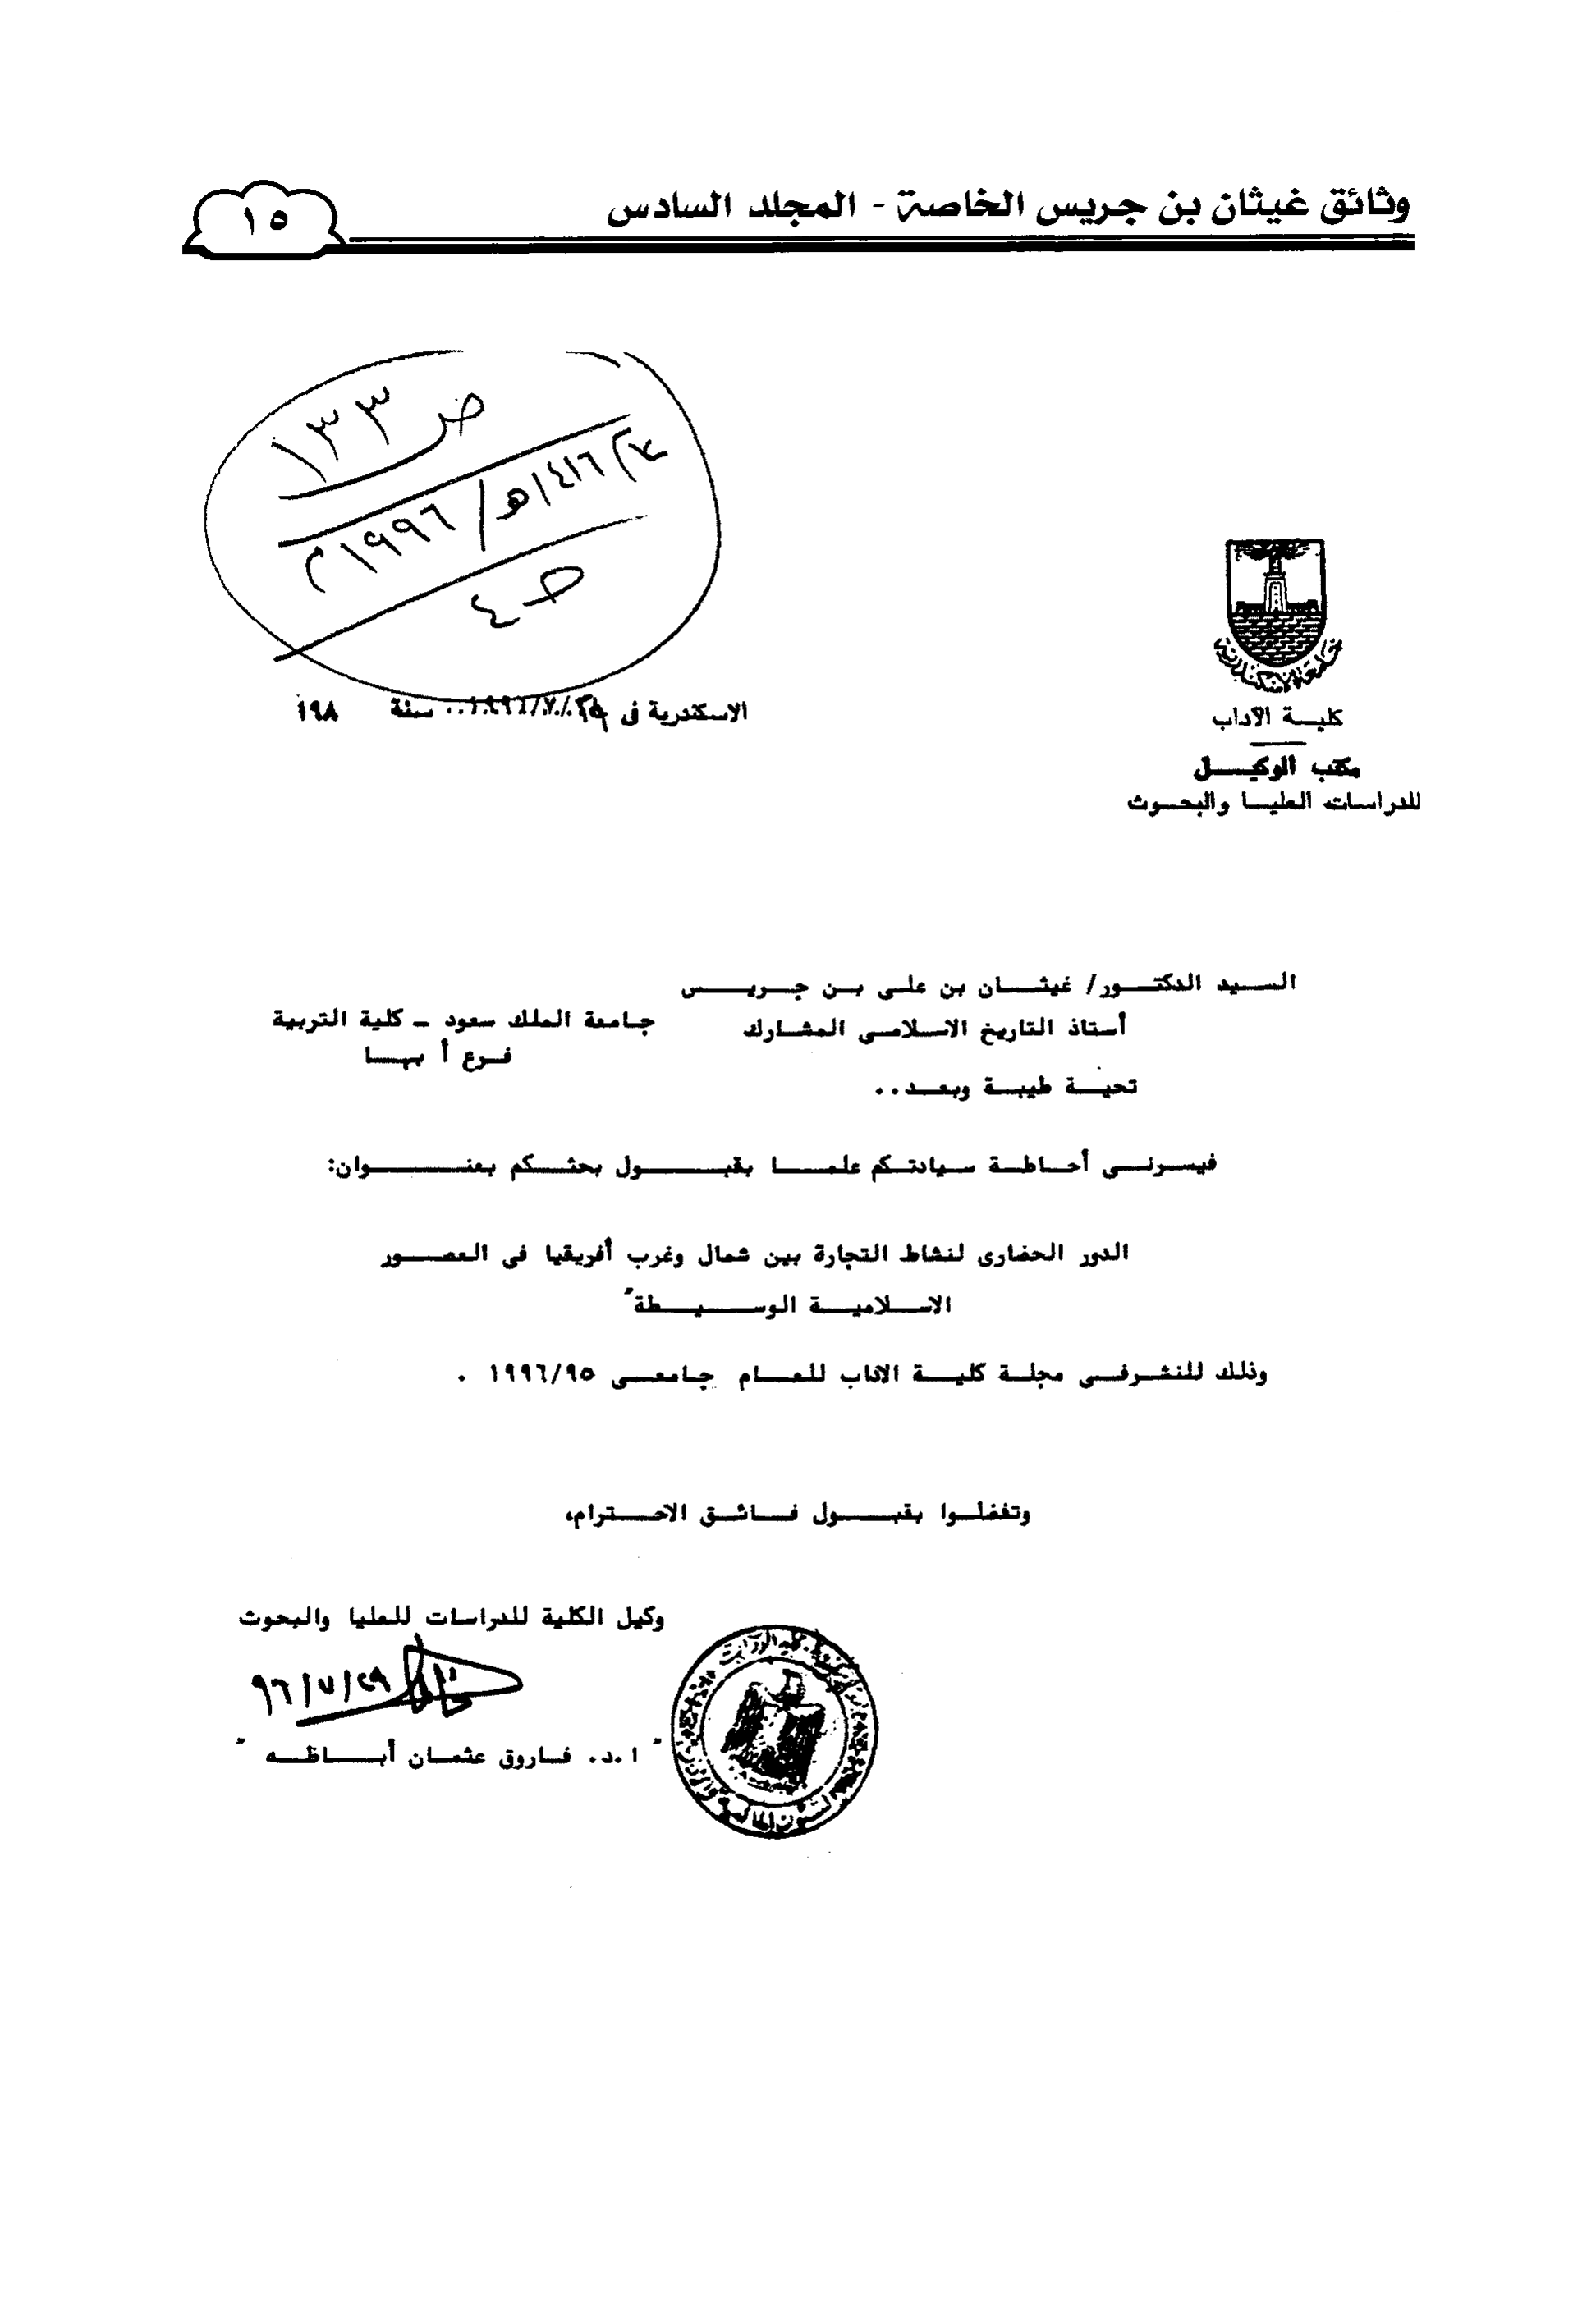 وثائق غيثان بن جريس الخاصة - المجلد السادس
١٥
ص ١٣٣
١٤١٦هـ/ ١٩٩٦م
ص ٤
جامعة الاسكندرية
كلية الآداب
مكتب الوكيل
للدراسات العليا والبحوث
الاسكندرية فى ١٩٩٦/٧/ سنة ١٩٨
السيد الدكتور/ غيثان بن على بن جريس
أستاذ التاريخ الاسلامى المشارك
جامعة الملك سعود - كلية التربية
فرع أبها
تحية طيبة وبعد..
فيسرنى أحاطة سيادتكم علما بقبول بحثكم بعنوان:
الدور الحضارى لنشاط التجارة بين شمال وغرب أفريقيا فى العصور
الاسلامية الوسيطة"
وذلك للنشرفى مجلة كلية الاداب للعام جامعى ١٩٩٦/٩٥ .
وتفضلوا بقبول فائق الاحترام،
وكيل الكلية للدراسات للعليا والبحوث
٩٦/٧/٢٩
" ا.د. فاروق عثمان أباظه "